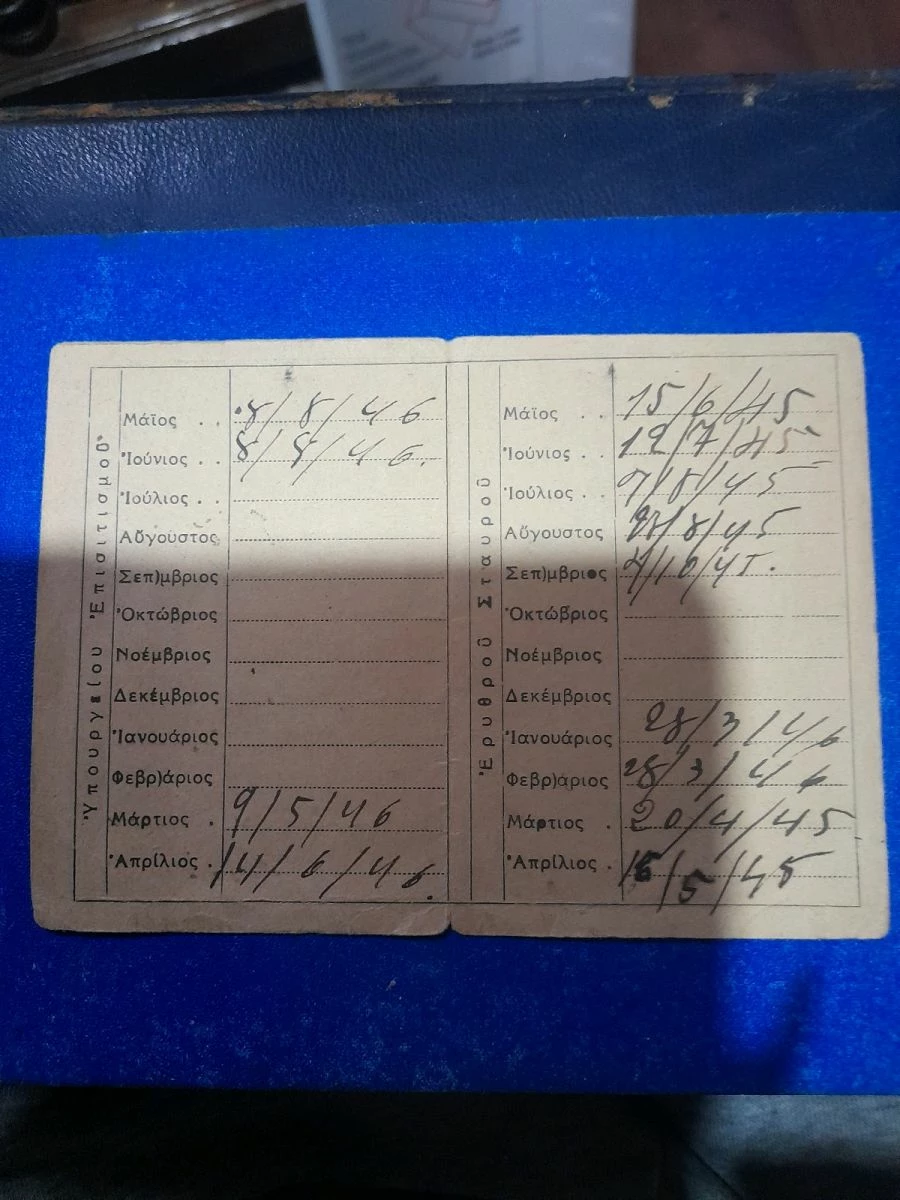 Ὑπουργείου Ἐπισιτισμοῦ
Μάϊος . . 8/8/46
Ἰούνιος . . 8/8/46.
Ἰούλιος . .
Αὔγουστος
Σεπ)μβριος
Ὀκτώβριος
Νοέμβριος
Δεκέμβριος
Ἰανουάριος
Φεβρ)άριος
Μάρτιος . 9/5/46
Ἀπρίλιος . 14/6/46.
Ἐρυθροῦ Σταυροῦ
Μάϊος . . 15/6/45
Ἰούνιος . . 12/7/45
Ἰούλιος . . 7/8/45
Αὔγουστος /8/45
Σεπ)μβριος /10/45.
Ὀκτώβριος
Νοέμβριος
Δεκέμβριος
Ἰανουάριος 28/3/46
Φεβρ)άριος 28/3/46
Μάρτιος . 20/4/45
Ἀπρίλιος . 16/5/45